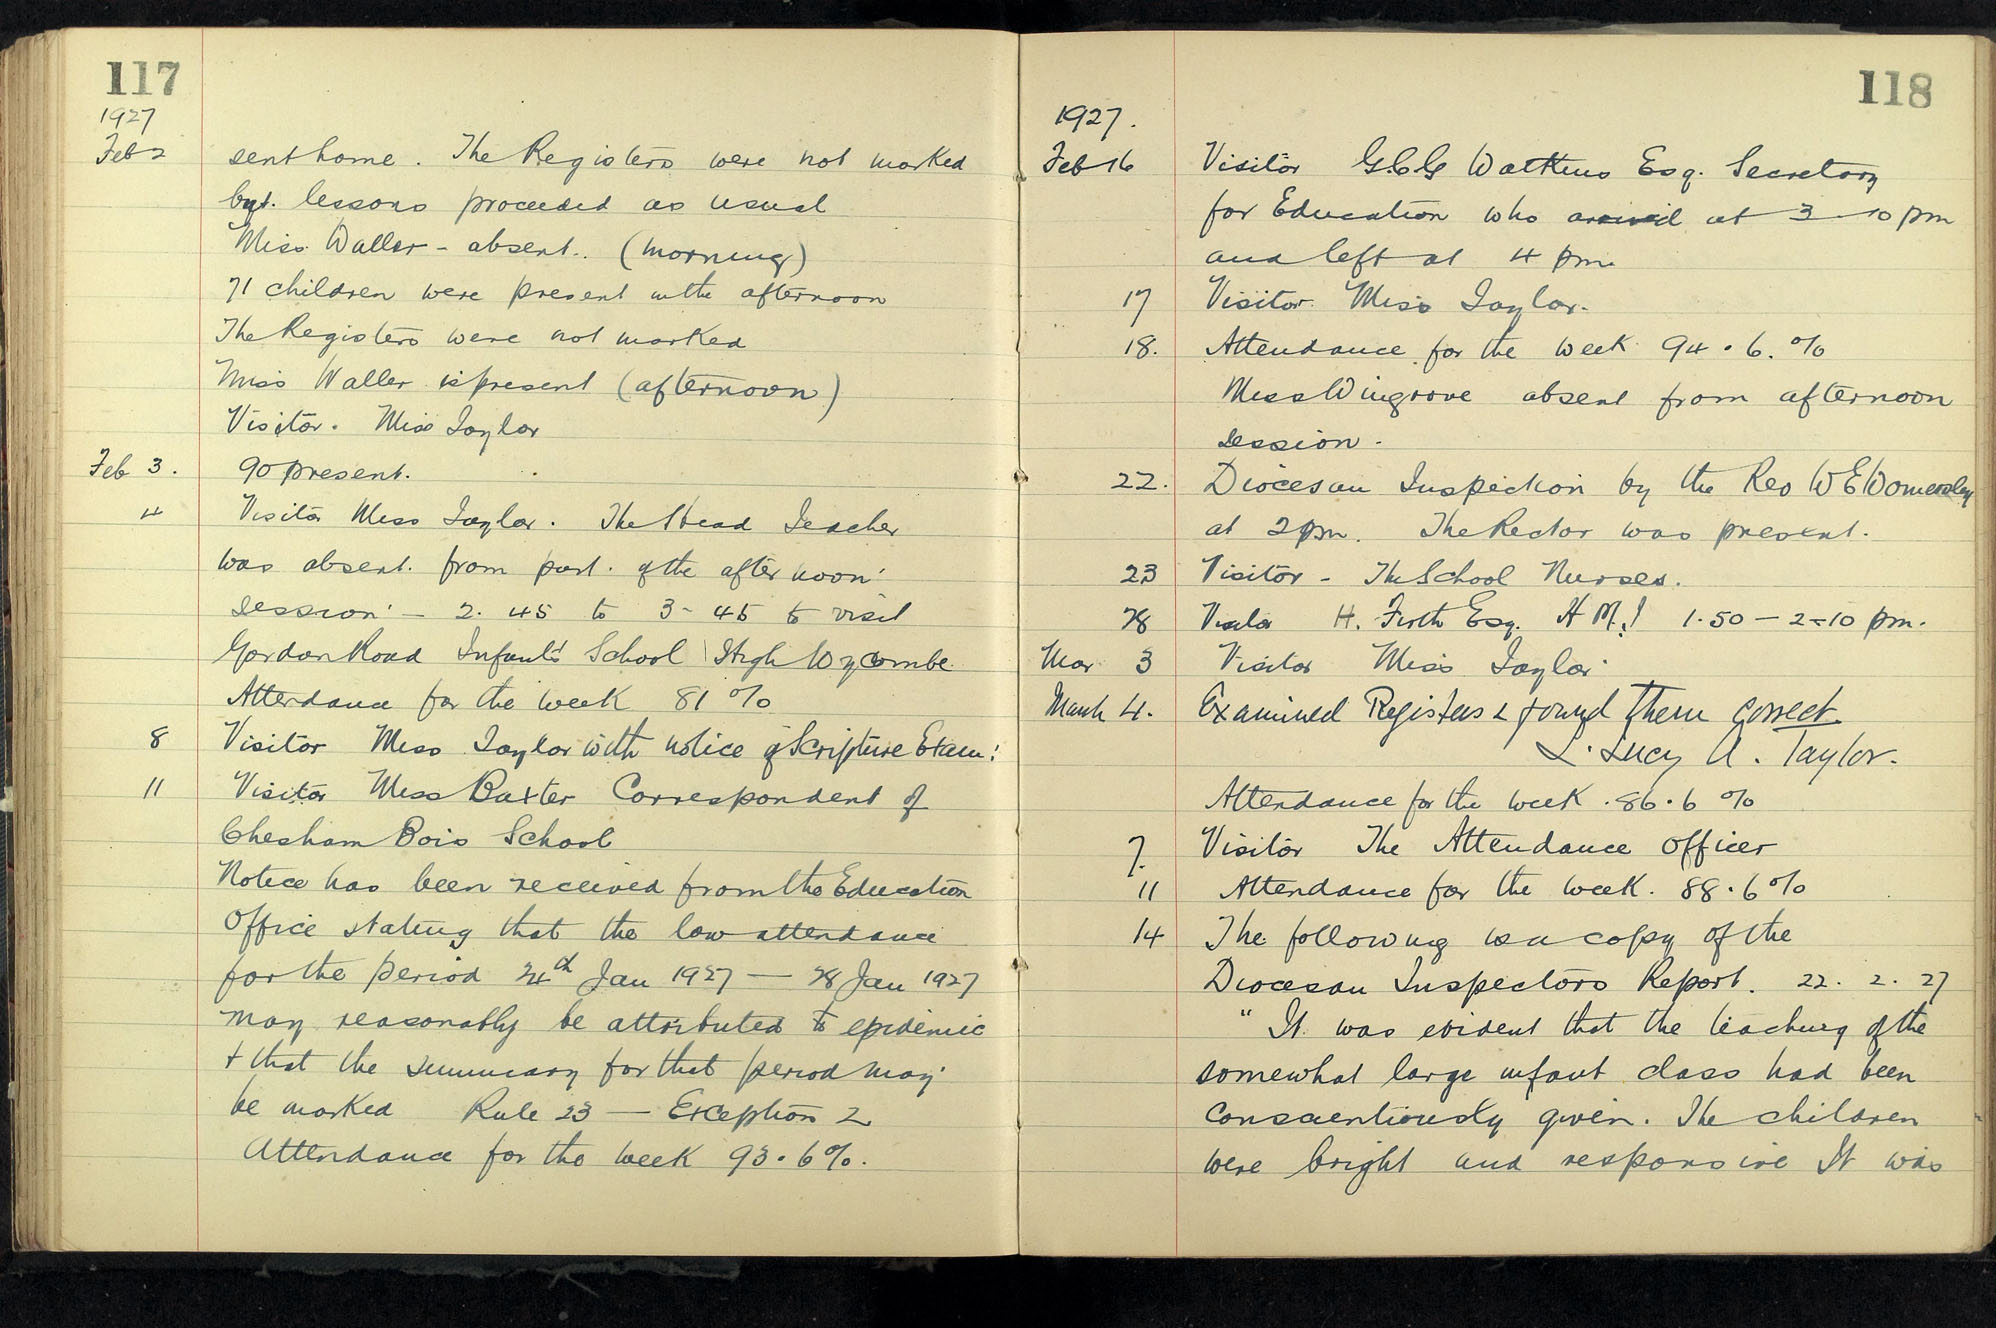 117
1927
Feb 2 sent home. The Registers were not marked
but lessons proceeded as usual
Miss Waller - absent.. (morning)
71 children were present in the afternoon
The Registers were not marked
Miss Waller is present (afternoon)
Visitor. Miss Taylor
Feb 3. 90 present.
4 Visitor Miss Taylor. The Head Teacher
was absent from part of the afternoon
session - 2.45 to 3-45 to visit
Gordon Road Infants School High Wycombe
Attendance for the week 81 %
8 Visitor Miss Taylor with notice of Scripture Exam:
11 Visitor Miss Baxter Correspondent of
Chesham Bois School
Notice has been received from the Education
Office stating that the low attendance
for the period 24th Jan 1927 — 28 Jan 1927
may reasonably be attributed to epidemic
+ that the summary for that period may
be marked Rule 23 — Exception 2
Attendance for the week 93.6%.
118
1927.
Feb 16 Visitor G.C.G Watkins Esq. Secretary
for Education who arrived at 3-10 pm
and left at 4 pm.
17 Visitor Miss Taylor.
18. Attendance for the week 94.6.%
Miss Wingrove absent from afternoon
session.
22. Diocesan Inspection by the Rev W E Womersley
at 2pm. The Rector was present.
23 Visitor - The School Nurses.
28 Visitor H. Firth Esq. H M.I 1.50 - 2-10 pm.
Mar 3 Visitor Miss Taylor
March 4. Examined Registers & found them correct.
L. Lucy A. Taylor.
Attendance for the week .86.6 %
7. Visitor The Attendance Officer
11 Attendance for the week. 88.6%
14 The following is a copy of the
Diocesan Inspectors Report. 22. 2. 27
" It was evident that the teaching of the
somewhat large infant class had been
conscientiously given. The children
were bright and responsive It was